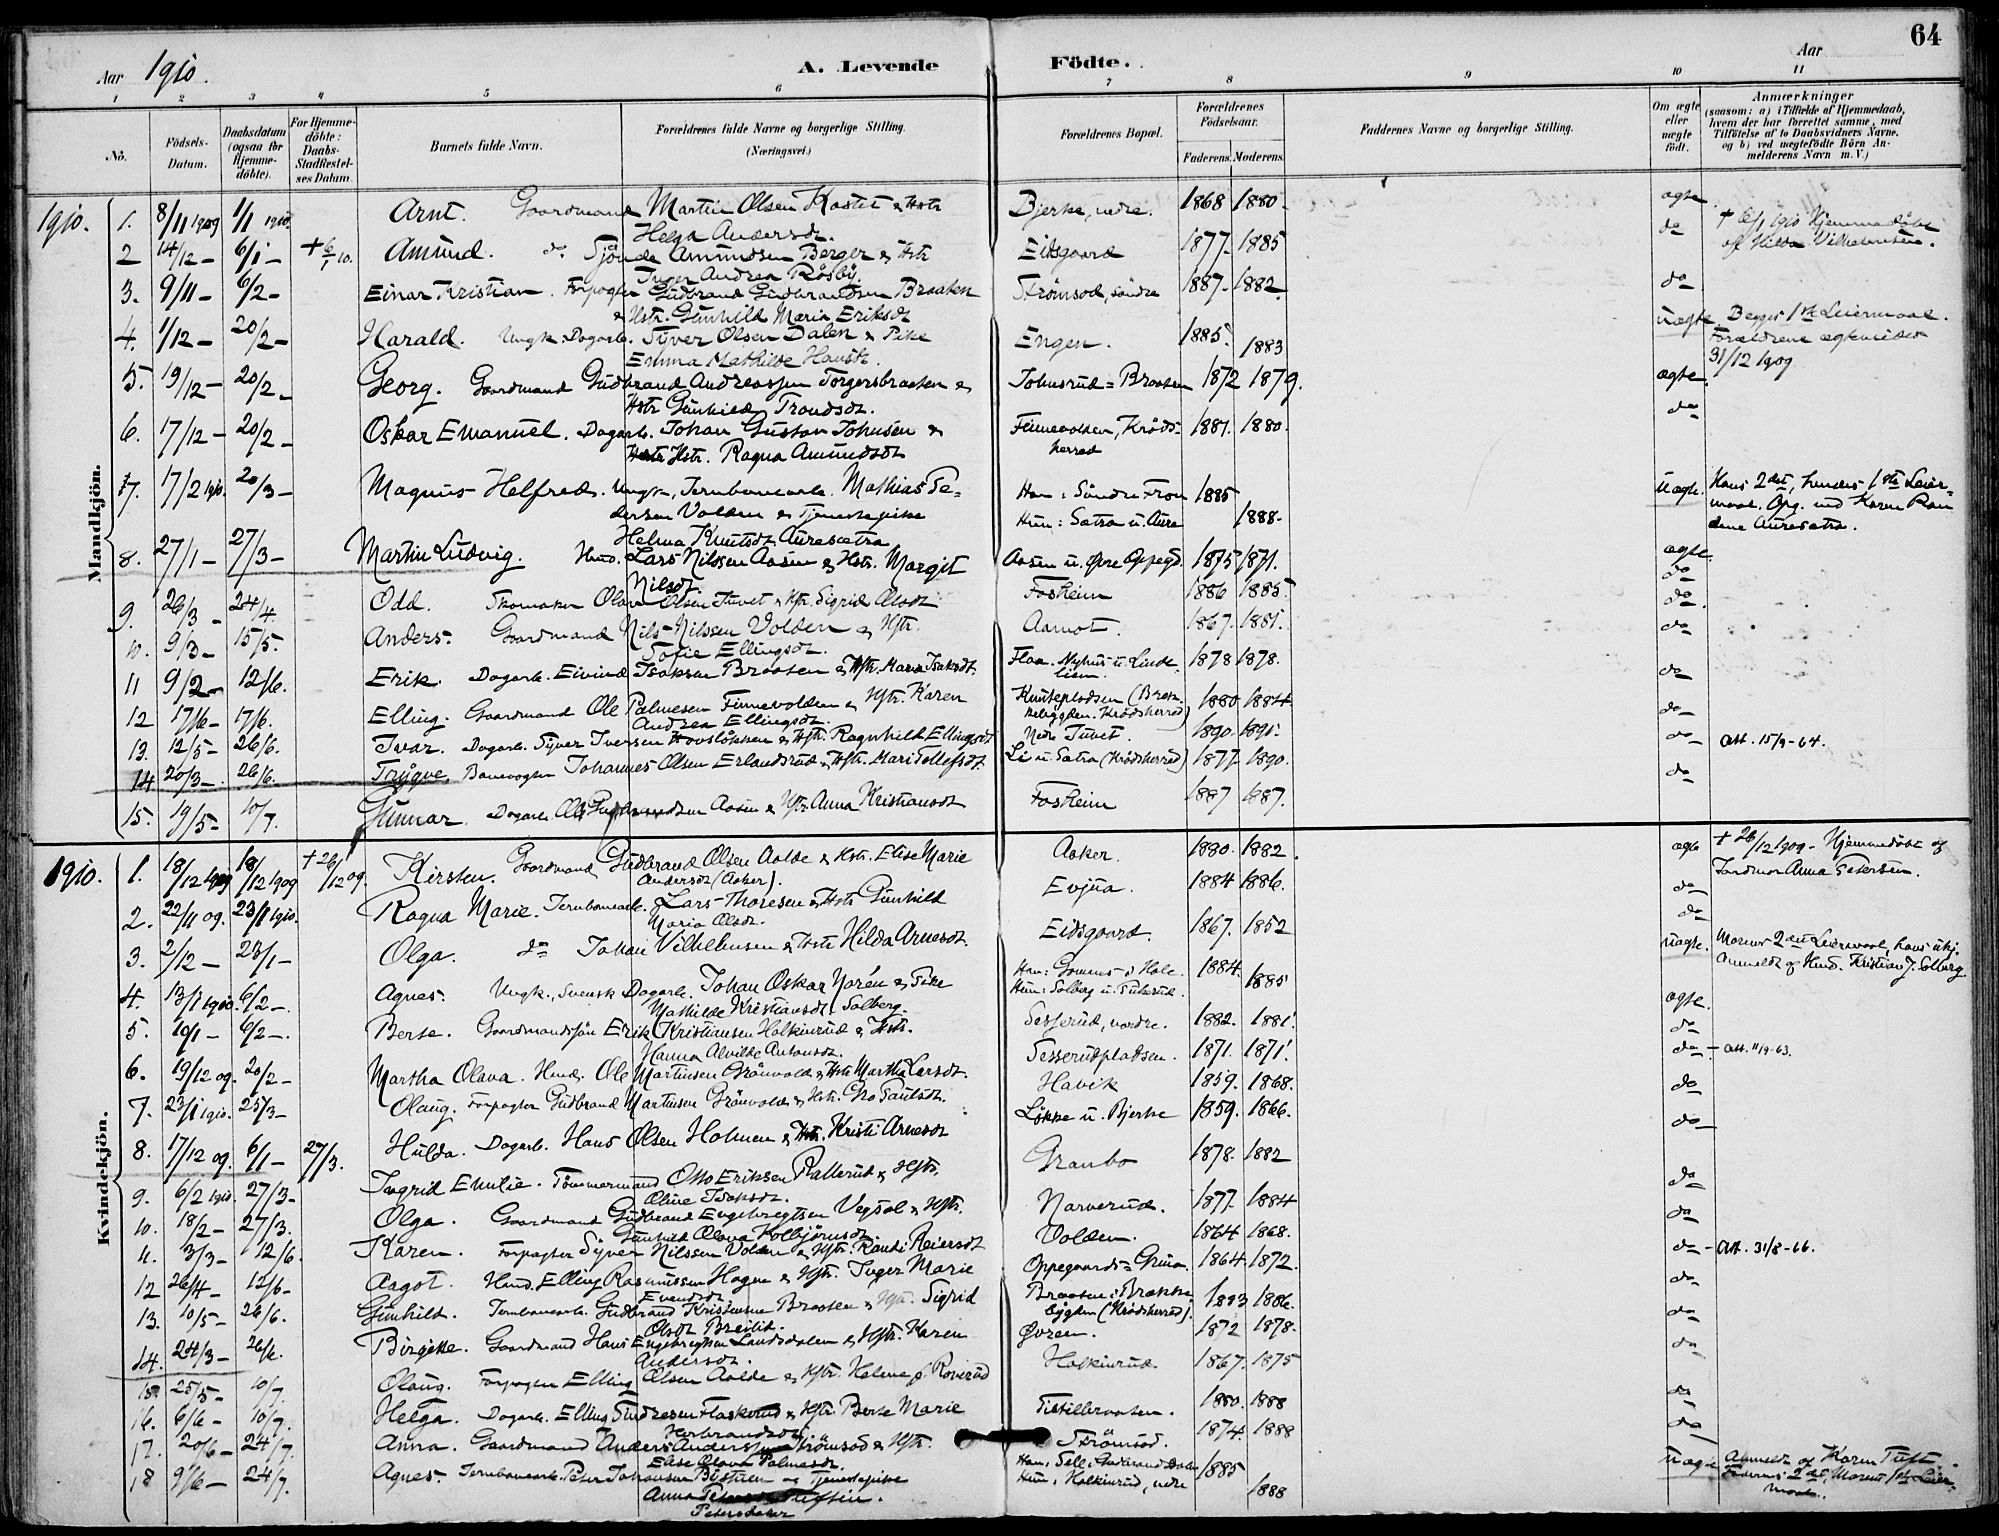 64
Aar 1910.
A. Levende Födte.
Aar
1 2 3 4 5 6 7 8 9 10 11
No.
Födsels-Datum.
Daabsdatum (ogsaa for Hjemme-döbte).
For Hjemme-döbte: Daabs-Stadfæstel-ses Datum.
Barnets fulde Navn.
Forældrenes fulde Navne og borgerlige Stilling.
(Næringsvei.)
Forældrenes Bopæl.
Forældrenes Födselsaar.
Faderens. Moderens.
Faddernes Navne og borgerlige Stilling.
Om ægte eller uægte födt.
Anmærkninger
(saasom: a) i Tilfælde af Hjemmedaab, hvem der har forrettet samme, med Tilföielse af to Daabsvidners Navne, og b) ved uægtefödte Börn An-melderens Navn m. V.)
Mandkjön.
1910. 1. 8/11 1909 1/1 1910. Arnt. Gaardmand Martin Olsen Kastet & Hstr Bjerke, nedre. 1868 1880. ægte
Helga Andersdt.
2 14/12 – 6/1 – + 6/1 10. Amund. do Sjönde Amundsen Berger & Hstr Eidsgaard 1877. 1885 do + 6/1 1910 Hjemmedöbt
Inger Andrea Røsby. af Hilda Vilhelmsen.
3. 9/11 – 6/2 – Einar Kristian. Forpagter Gudbrand Gudbrandsen Braaten Strömsod, söndre 1887. 1882. do
& Hstr. Gunhild Maria Eriksdt
4. 1/12 – 20/2 – Harald. Ungk. Dagarb. Syver Olsen Dalen & Pike Engen. 1885. 1883 Uægte Begges 1ste Leiermaal.
Emma Mathilde Hansdt. Forældrene ægteviedes
31/12 1909
5. 19/12 – 20/2 – Georg. Gaardmand Gudbrand Andreassen Torgersbraaten & Johnsrud-Braaten 1872 1879. ægte
Hstr Gunhild Trondsdt.
6. 17/12 – 20/2 – Oskar Emanuel. Dagarb. Johan Gustav Johnsen & Finnevolden, Kröds- 1887. 1880. do
Hstr. Ragna Amundsdt herred
7. 17/2 1910. 20/3 – Magnus Helfred. Ungk., Jernbanearb. Mathias Pe- Han: Söndre Fron 1885 Uægte. Hans 2det, hendes 1ste Leier-
dersen Volden & Tjenestepike Hun: Sætra u. Aure 1888. maal. Opg. ved Karen Ran
Helma Knutsdt Auresætra dine Auresætra.
8. 27/1 – 27/3 – Martin Ludvig. Hmd. Lars Nilssen Aasen & Hstr. Margit Aasen u. øvre Oppegd. 1875 1871. ægte.
Nilsdt do
9. 26/3 – 24/4. Odd. Skomaker Olaus Olsen Tuvet & Hstr. Sigrid Olsdt Fosheim 1886 1885. do
10. 9/3 – 15/5. Anders. Gaardmand Nils Nilssen Volden & Hstr. Aamot. 1867. 1881. do
Sofie Ellingsdt.
11 9/2 – 12/6. Erik. Dagarb. Eivind Isaksen Braaten & Hstr. Maria Isaksdt. Flaa. Nyhus u. Linde- 1878 1878. do
lien.
12 17/6 – 17/6. Elling. Gaardmand Ole Palmesen Finnevolden & Hstr. Karen Knutspladsen (Bræk- 1880 1884 do
Andrea Ellingsdt. kebygden. Krödsherred)
13. 12/5 – 26/6. Ivar. Dagarb. Syver Iversen Hovsløkken & Hstr. Ragnhild Ellingsdt Nedre Tuvet. 1890. 1891. do Att. 15/9-64.
14 20/3 – 26/6. Trygve. Banevogter Johannes Olsen Erlandsrud & Hstr. Mari Tollefsdt. Li u. Sætra (Krödsherred) 1877. 1890. do
15. 19/5 – 10/7. Gunnar. Dagarb. Ole Gudbrandsen Aasen & Hstr. Anna Kristiansdt Fosheim 1887 1887.
Kvindekjön.
1910. 1. 18/12 1909 18/12 1909 + 26/12 09. Kirsten. Gaardmand Gudbrand Olsen Aalde & Hstr. Elise Marie Asker. 1880. 1882. ægte + 26/12 1909 – Hjemmedöbt af
Andersdt (Asker). Jordmor Anna Petersen.
2. 22/11 09. 23/1 1910. Ragna Marie. Jernbanearb. Lars Thoresen & Hstr Gunhild Evjua. 1884 1886. do
Maria Olsdt.
3. 2/12 – 23/1 – Olga. do Johan Vilhelmsen & Hstr Hilda Arnesdt. Eidsgaard. 1867. 1852 do
4. 13/1 1910. 6/2 –. Agnes. Ungk., Svensk Dagarb. Johan Oskar Norén & Pike Han: Gommes i Hole. 1884. 1885 Uægte. Morens 2det Leiermaal, hans ukj.
Mathilde Kristiansdt. Solberg. Hun: Solberg u. Anmeldt af Hmd. Kristian J. Solberg
5. 10/1 – 6/2 –. Berte. Gaardmandssön Erik Kristiansen Halkinrud & Hstr. Sesserud, nordre. 1882. 1881. ægte.
Hanna Alvilde Antonsdt. do
6. 19/12 09. 20/2 – Martha Olava. Hmd. Ole Martinsen Grönvold & Hstr Martha Larsdt. Sesserudpladsen. 1871. 1871. do – Att. 11/9-63.
7. 23/1 1910. 25/3 – Olaug. Forpagter Gudbrand Martinsen Grönvold & Hstr. Gro Paulsdt. Havik 1859. 1868. do
8. 17/12 09. 6/1 – 27/3. Hulda. Dagarb. Hans Olsen Holmen & Hstr. Kristi Arnesdt Løkke u. Bjerke 1859. 1866. do
9. 6/2 1910. 27/3 – Ingrid Emelie. Tömmermand Otto Eriksen Rallerud & Hstr. Granbo 1878. 1882
Oline Isaksdt. do
10. 18/2 – 27/3. Olga. Gaardmand Gudbrand Engebregtsen Vegsol & Hstr. Narverud. 1877. 1884
Gunhild Olava Kolbjörnsdt do
11. 3/3 – 12/6. Karen. Forpagter Syver Nilssen Volden & Hstr. Randi Reiersdt Volden. 1864 1868.
12 26/4 – 12/6 – Aagot. Hmd. Elling Rasmussen Hagen & Hstr. Inger Marie Oppegaards-Grina. 1864. 1872. do – Att. 31/8-66.
Evensdt
13. 10/5 – 26/6. Gunhild. Jernbanearb. Gudbrand Kristensen Braaten & Hstr. Sigrid Braaten i Brække- 1883 1886. do
Olsdt Breilid. bygden (Krödsherred).
14. 24/3 – 26/6. Birgitte. Gaardmand Hans Engebregtsen Landsdalen & Hstr. Karen Øvreen. 1872 1878. do
Andersdt.
15. 25/5 – 10/7. Olaug. Forpagter Elling Olsen Aalde & Hstr. Helene J. Roverud Halkinrud. 1867. 1875 do
16. 6/6 – 10/7. Helga. Dagarb. Elling Andresen Flaskerud & Hstr. Berte Marie Tistilbraaten. 1880. 1888 do
Herbrandsdt
17. 20/6 – 24/7. Anna. Gaardmand Anders Anderssen Strömsod & Hstr. Strömsod. 1874. 1888 do
Elise Olava Palmesdt.
18 9/6 – 24/7. Agnes. Jernbanearb. Peter Johansen Bystuen og Tjenestepike Han: Sell i Gudbrandsdalen 1885 Uægte Anmeldt af Karen Tuft.
Anna Tuftin. Hun: Halkinrud, nedre 1888 Faderens 2det, Morens 1ste Leier-
Petersdatter maal.